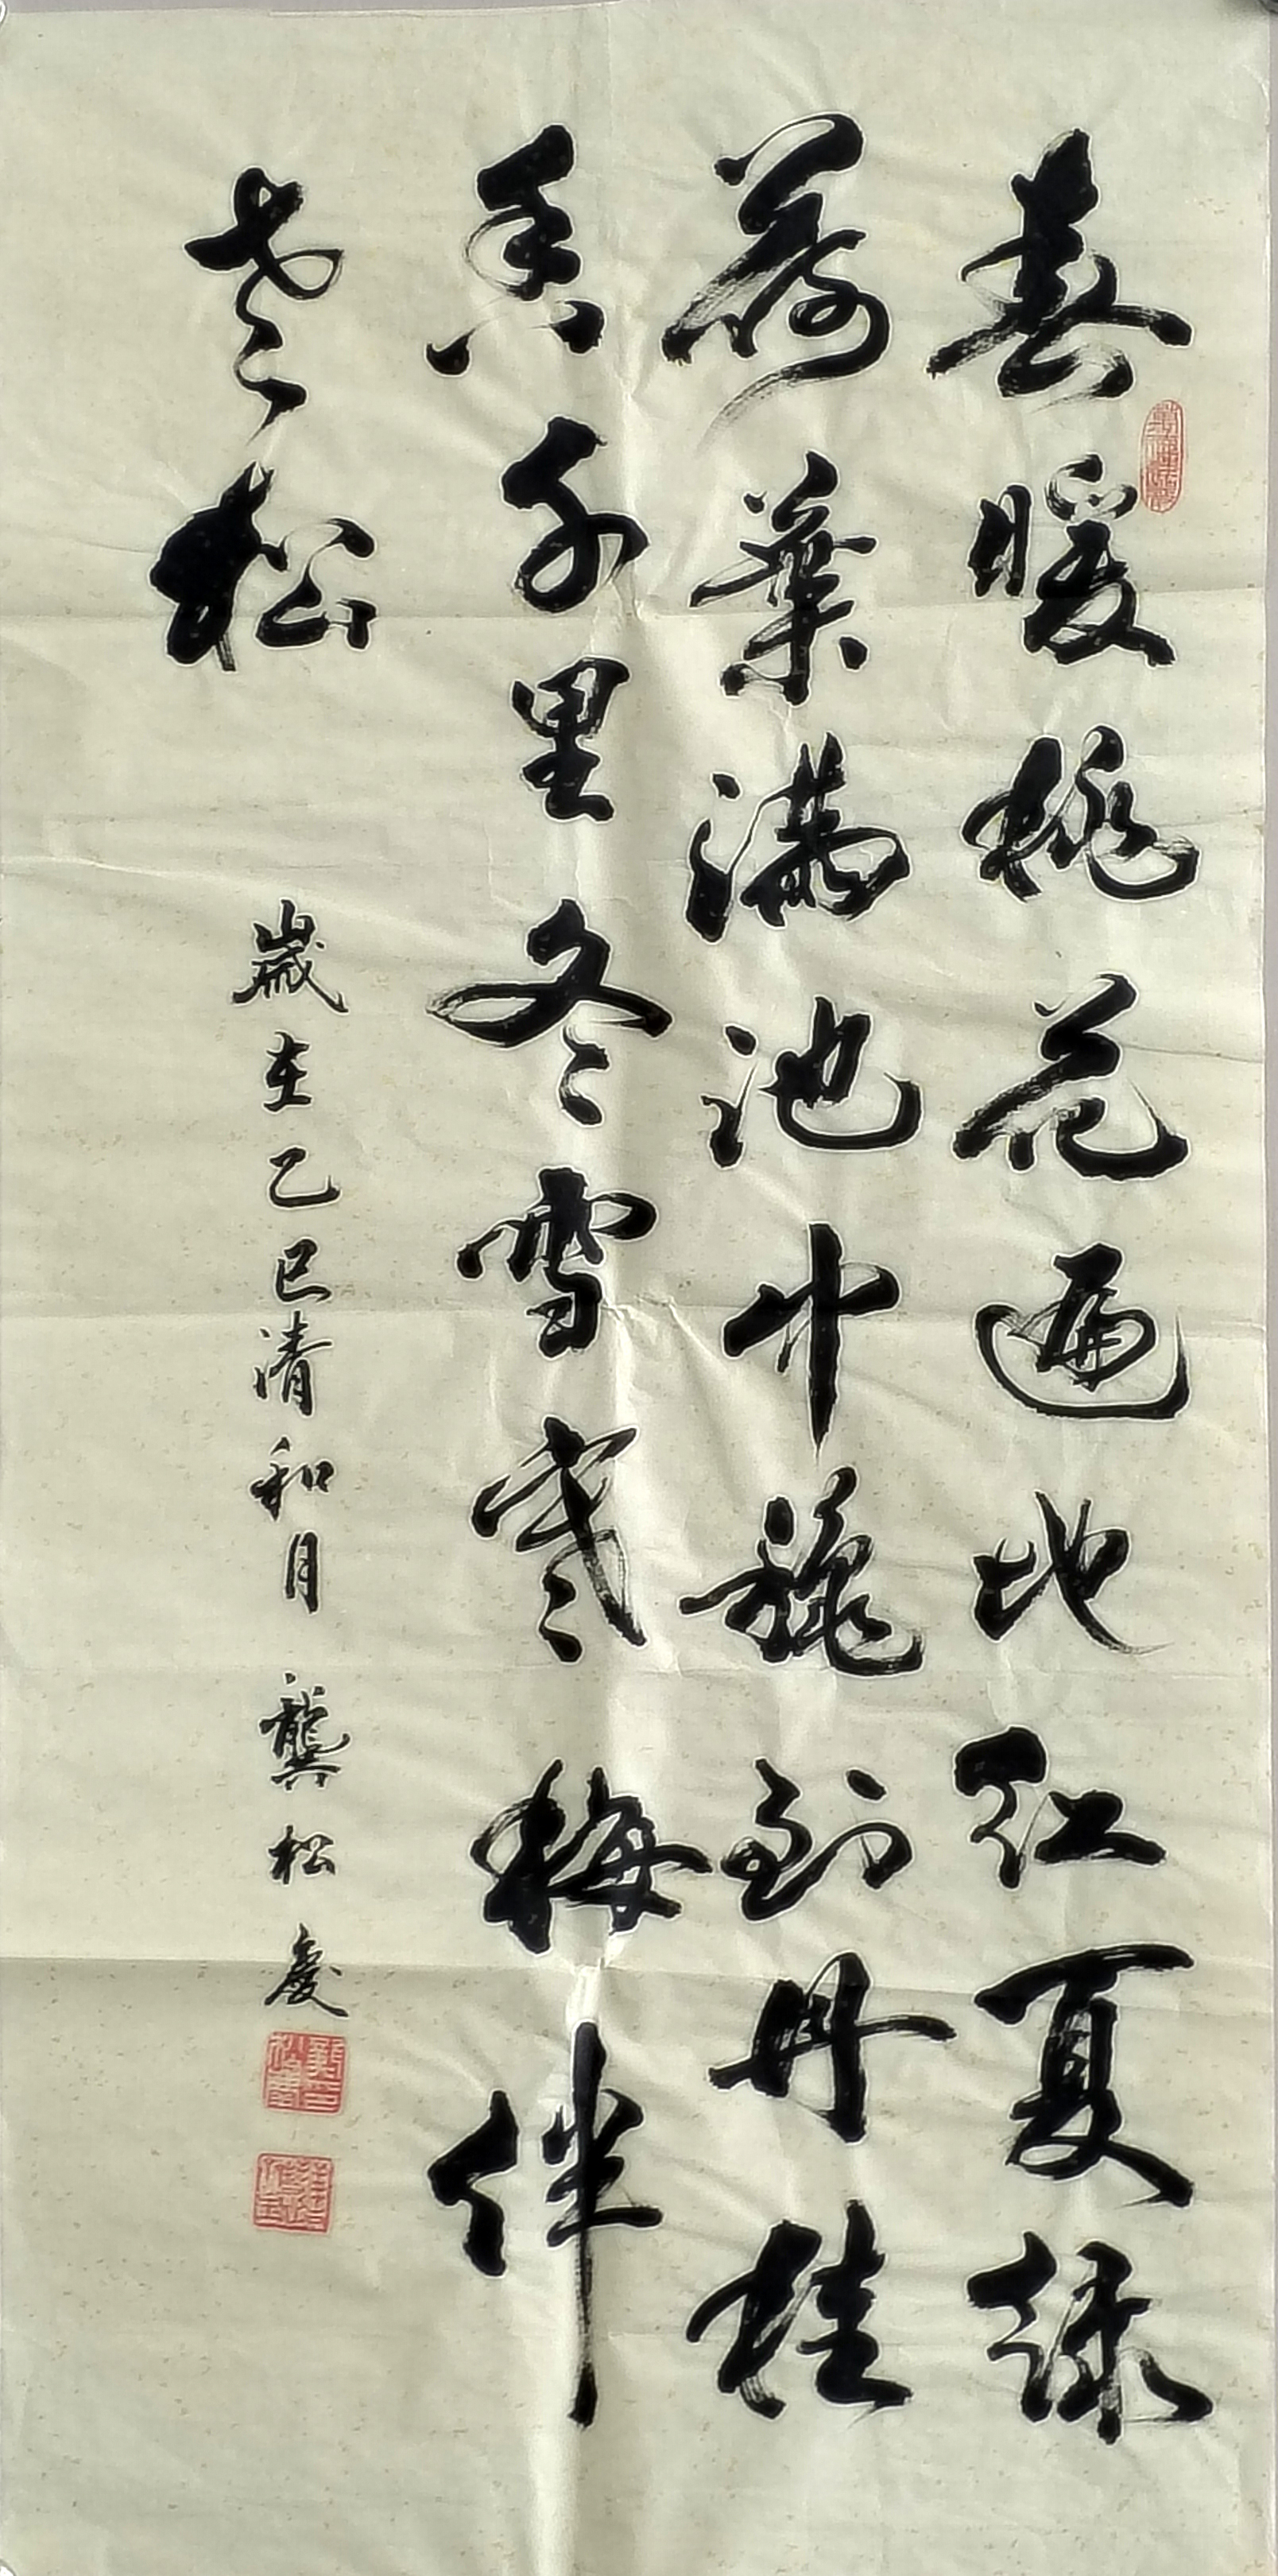 春暖桃花遍地红夏绿
荷葉满池中穐到丹桂
香千里冬雪寒梅伴
老松
歲在乙巳清和月 龔松慶